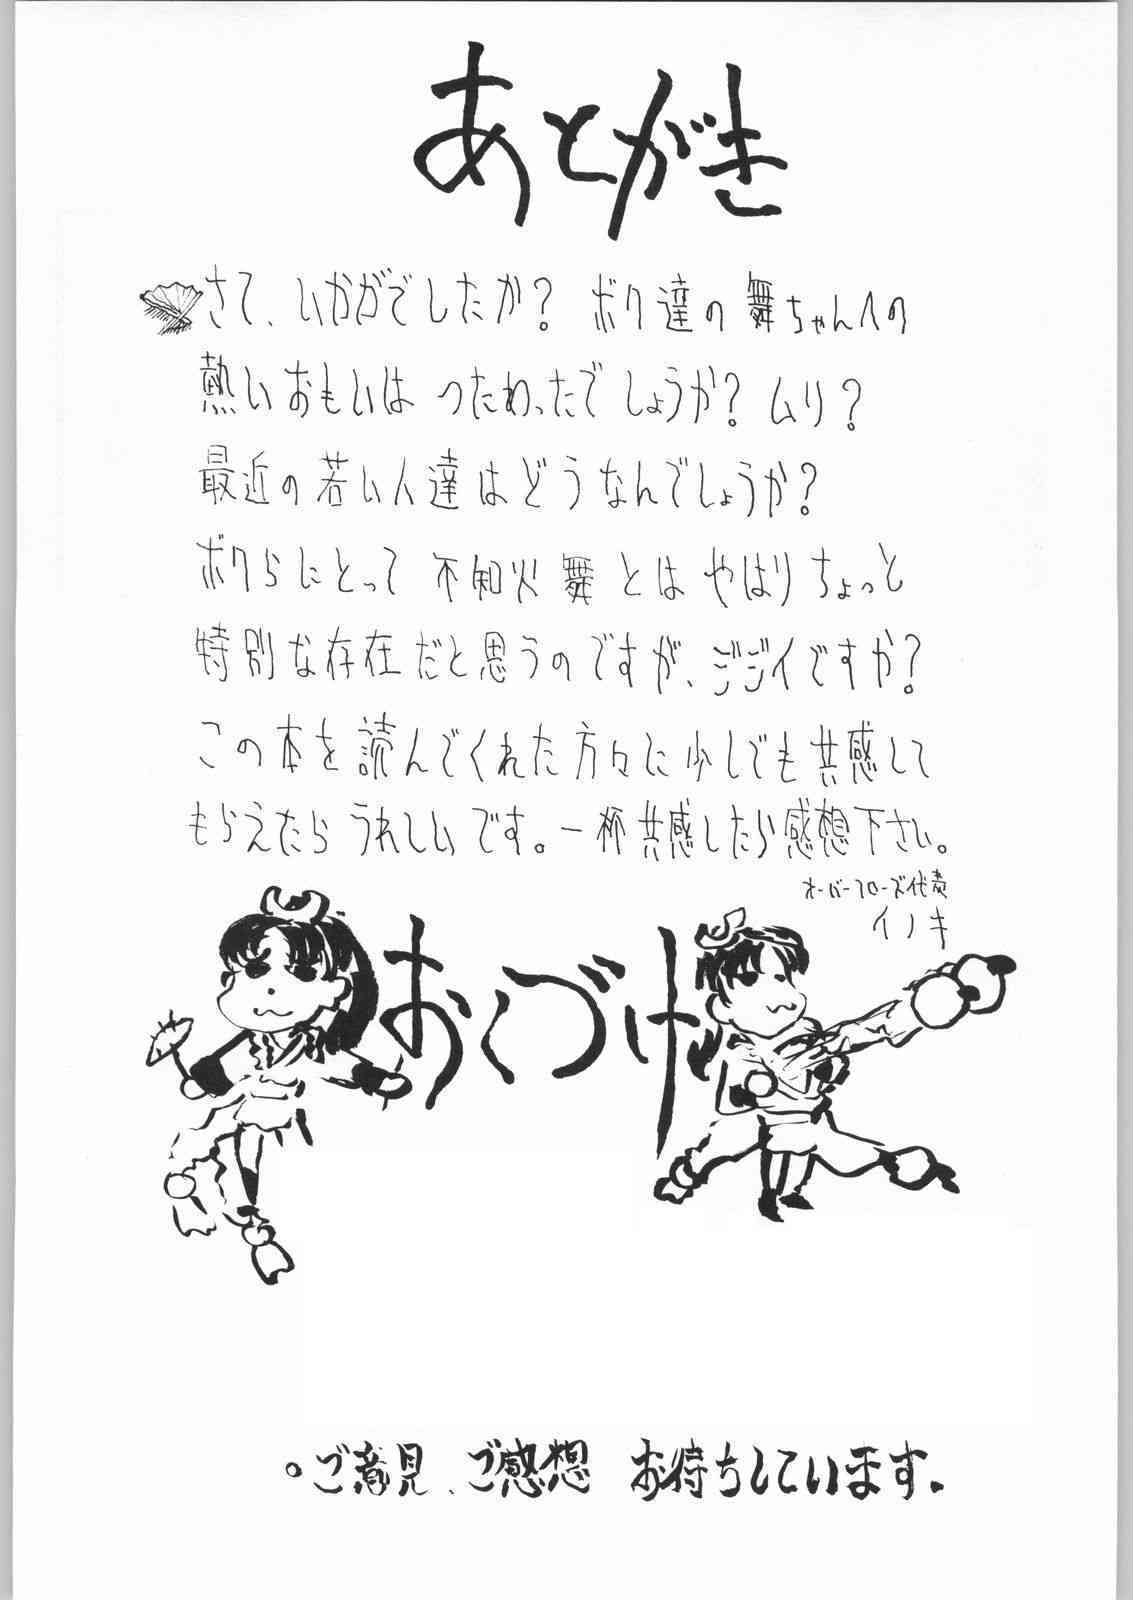 あとがき
さて、いかがでしたか？ ボク達の舞ちゃんへの
熱いおもいは つたわったでしょうか？ ムリ？
最近の若い人達はどうなんでしょうか？
ボクらにとって 不知火舞とは やはりちょっと
特別な存在だと思うのですが、ジジイですか？
この本を読んでくれた方々に少しでも共感して
もらえたら うれしいです。一杯共感したら感想下さい。
オーバーフローズ代表
イノキ
おくづけ
・ご意見、ご感想 お待ちしています。